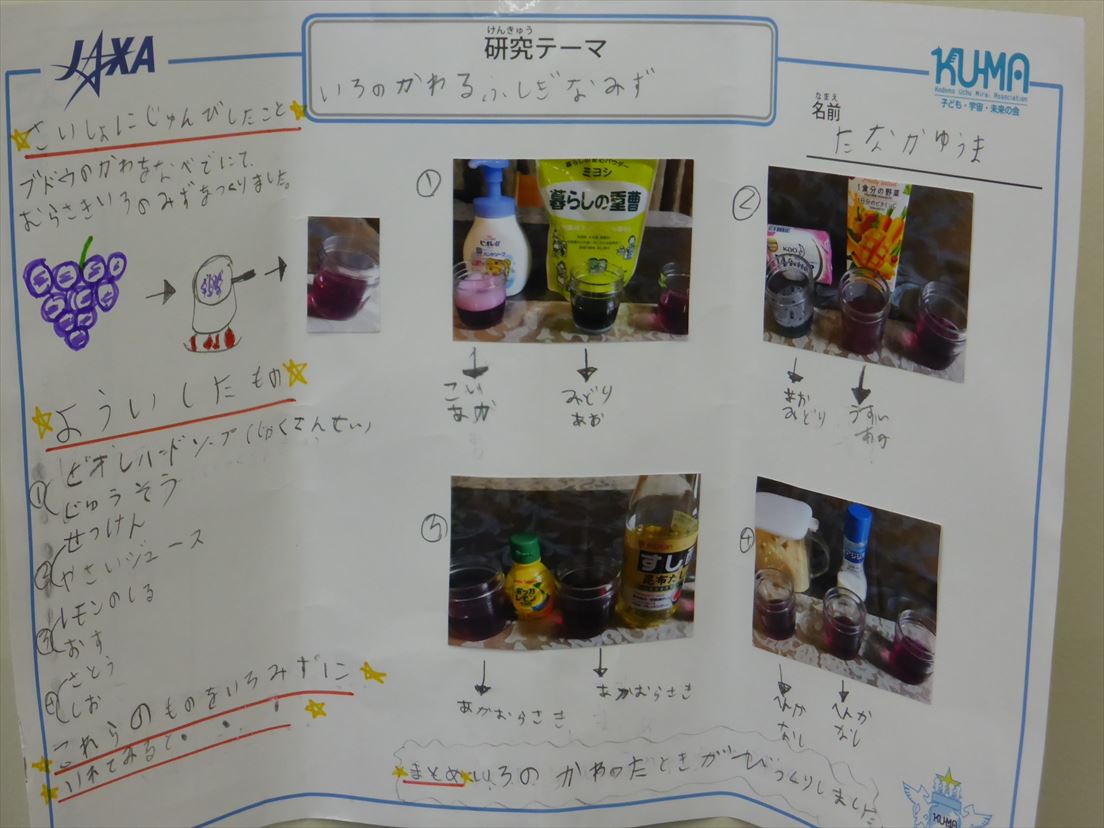 JAXA
けんきゅう
研究テーマ
いろのかわるふしぎなみず
KU-MA
Kodomo Uchu Mirai Association
子ども・宇宙・未来の会
なまえ
名前
たなかゆうま
さいしょにじゅんびしたこと
ブドウのかわをなべでにて、
むらさきいろのみずをつくりました。
よういしたもの
① ビオレハンドソープ(じゃくさんせい)
じゅうそう
② せっけん
やさいジュース
③ レモンのしる
おす
④ さとう
しお
これらのものをいろみずに
いれてみると・・・
①
ミヨシ
暮らしの重曹
こい
あか
みどり
あお
②
Kao
1食分の野菜
1日分のビタミン
みどり
うすい
③
ポッカ
レモン
すし
昆布だし
あかむらさき
あかむらさき
④
へんか
なし
へんか
なし
まとめ いろのかわったときがびっくりしました
KUMA